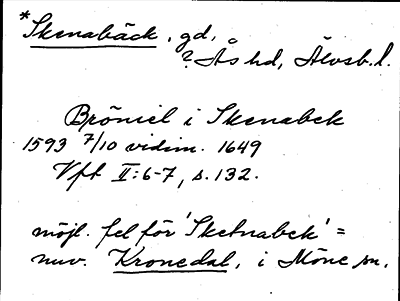 *Skenabäck, gd,
? Ås hd, Älvsb. l.
Bröniel i Skenabek
1593 7/10 vidim. 1649
Vft II:6-7, s. 132.
möjl. fel för 'Sketnabek' =
nuv. Kronedal, i Möne sn.